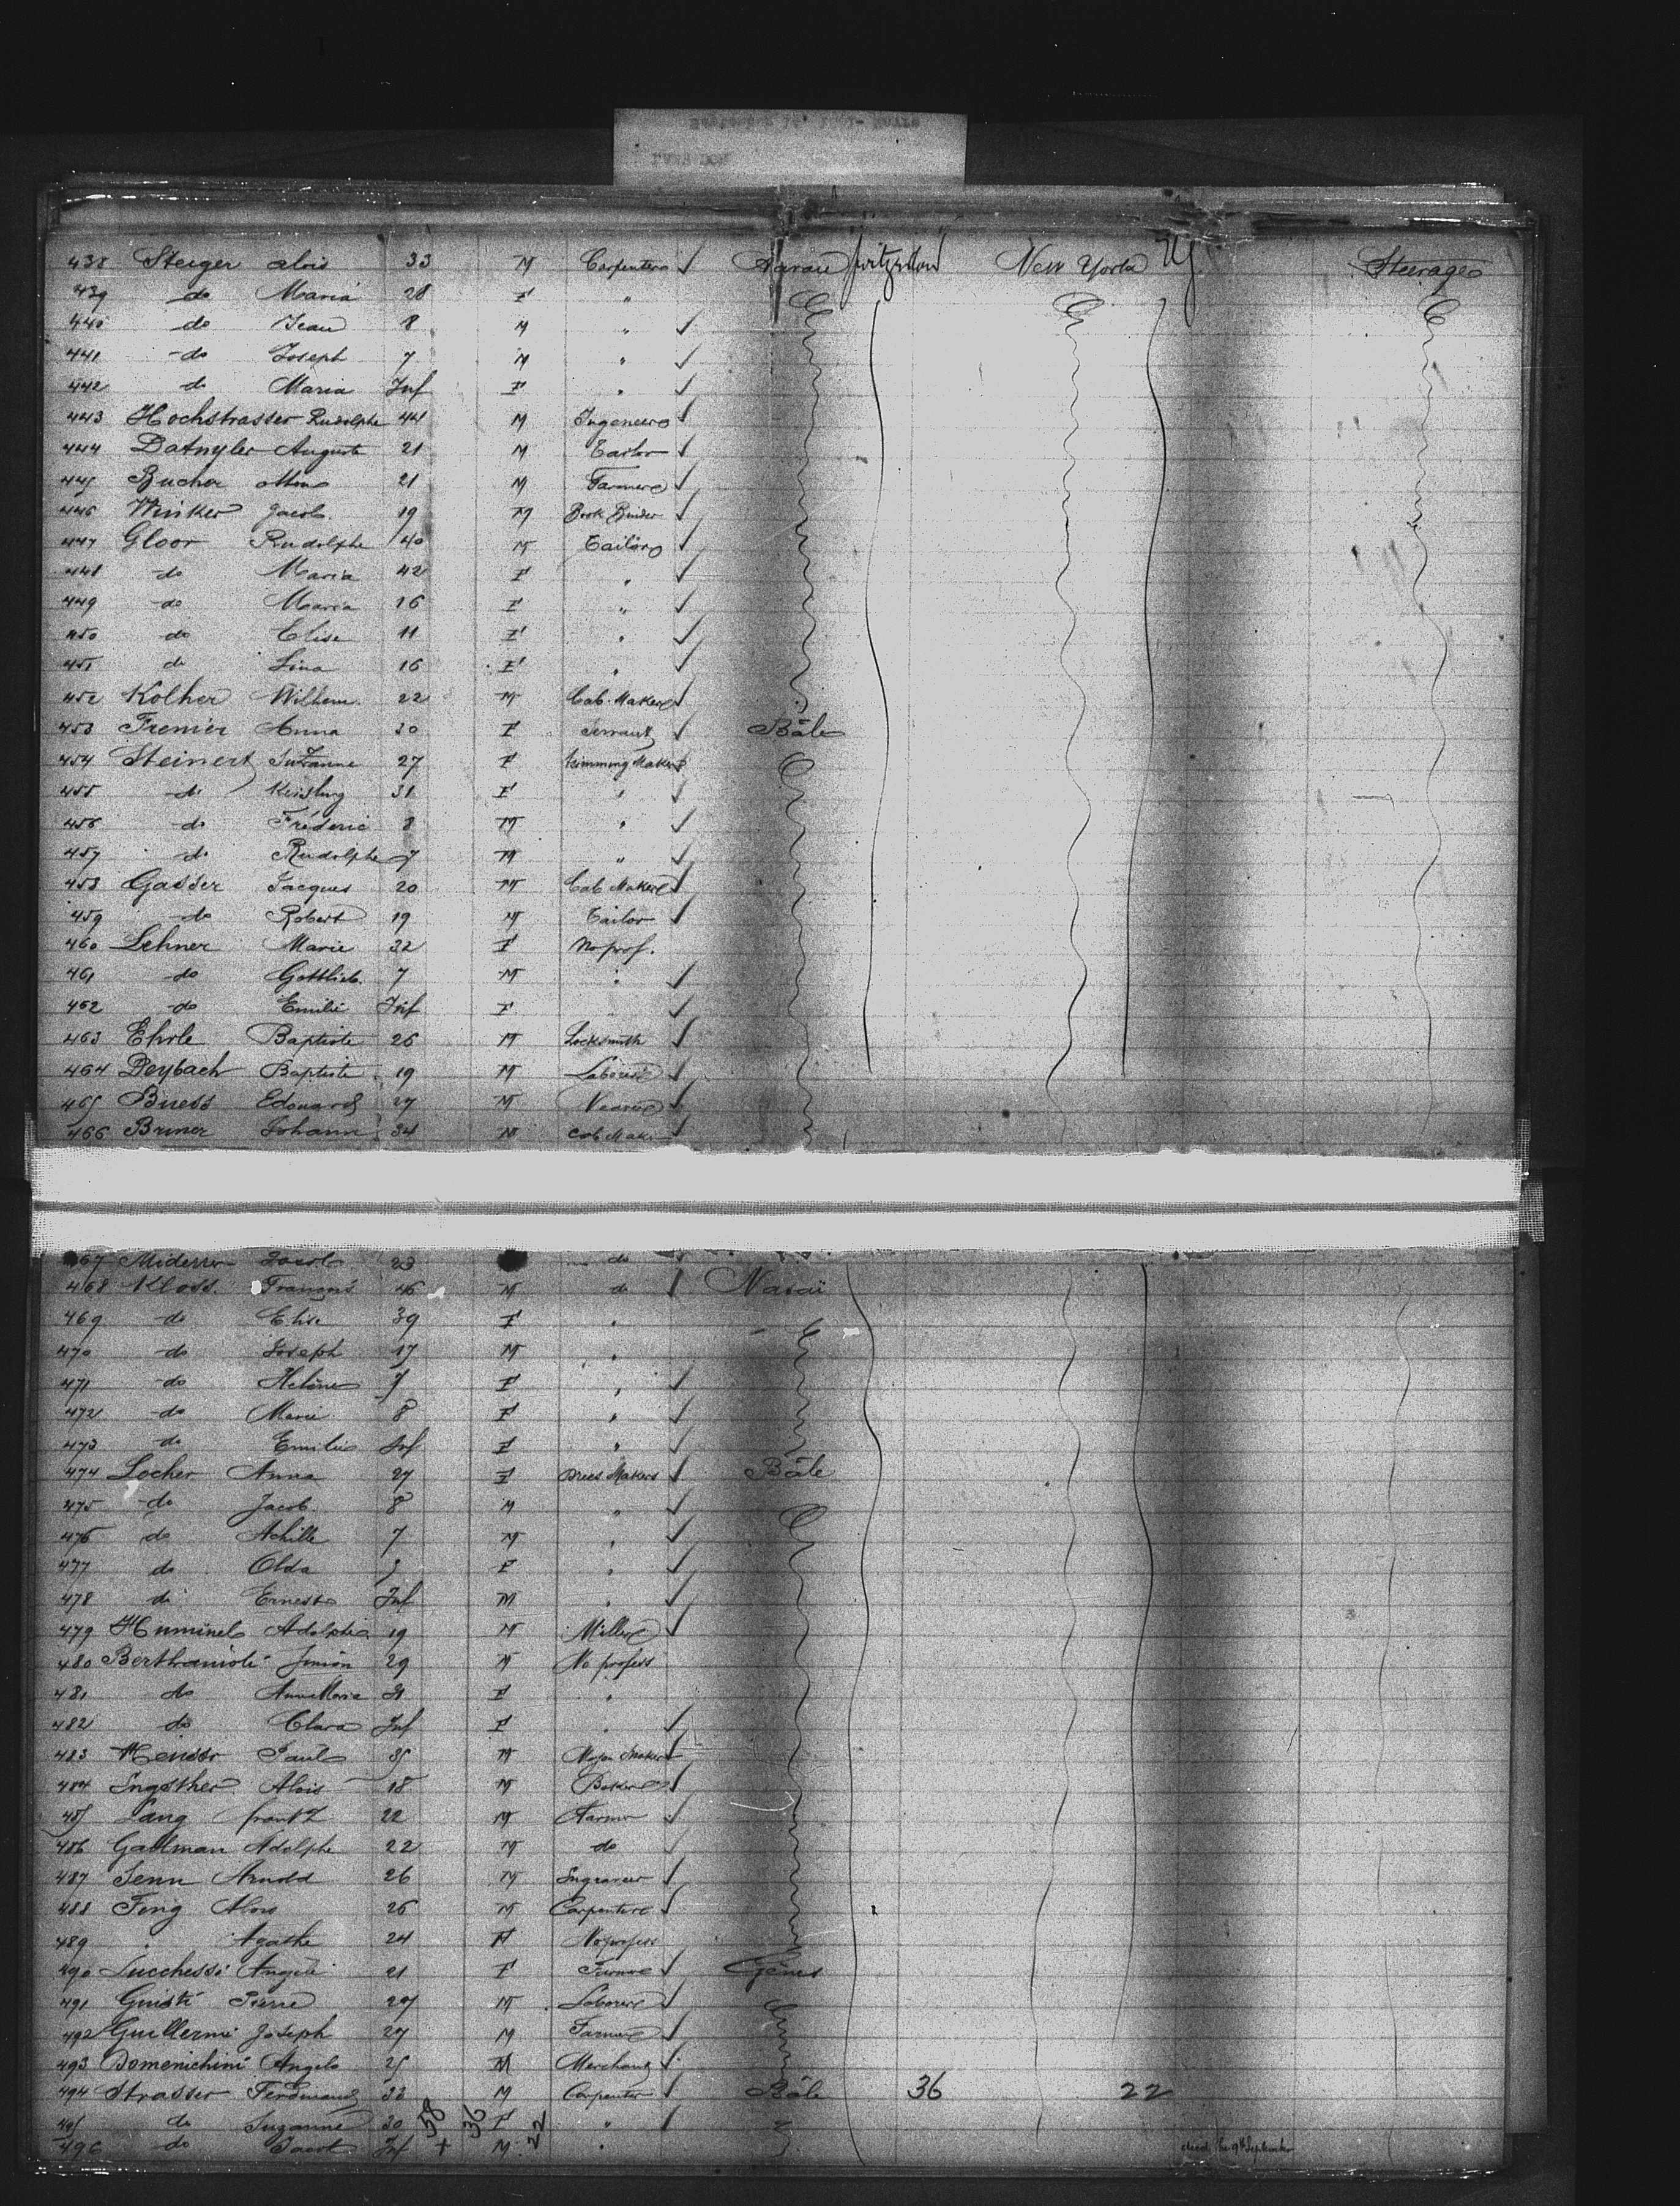 438 Steiger Alois 33 M Carpenter ✓ Aarau Switzerland New York Steerage
439 do Maria 28 F "
440 do Jean 8 M " ✓
441 do Joseph 7 M " ✓
442 do Maria Inf F " ✓
443 Hochstrasser Rudolphe 44 M Ingeneer ✓
444 Datwyler Auguste 21 M Tailor ✓
445 Bucher 21 M Farmer ✓
446 Winker Jacob. 19 M Book Binder ✓
447 Gloor Rudolphe 40 M Tailor ✓
448 do Maria 42 F " ✓
449 do Maria 16 F " ✓
450 do Elise 11 F " ✓
451 do Lina 16 F " ✓
452 Kolher Wilhem. 22 M Cab. Maker ✓
453 Fremier Anna 30 F Servant ✓ Bâle
454 Steinert Suzanne 27 F trimming Maker
455 do 31 F " ✓
456 do Fréderic 8 M " ✓
457 do Rudolphe 7 M " ✓
458 Gasser Jacques 20 M Cab Maker ✓
459 do Robert 19 M Tailor ✓
460 Lehner Marie 32 F No prof.
461 do Gottlieb. 7 M " ✓
462 do Emilie Inf F ✓
463 Ehrle Baptiste 26 M Locksmith ✓
464 Deybach Baptiste 19 M Laborer ✓
465 Buess Edouard 27 M ✓
466 Briner Johann 34 M Cab Mak ✓
467 Jacob 23 do
468 Kloss. François 46 M do
469 do Elise 39 F "
470 do Joseph 17 M "
471 do Helène F " ✓
472 do Marie 8 F " ✓
473 do Emilie Inf F " ✓
474 Locher Anna 27 F Dress Makers ✓ Bâle
475 do Jacob. 8 M " ✓
476 do Achille 7 M " ✓
477 do Olda F " ✓
478 do Ernest Inf M " ✓
479 Huminel Adolphe 19 M Miller ✓
480 29 M No profess
481 do Anna Maria F "
482 do Clara Inf F " ✓
483 Paul M ✓
484 Alois 18 M Baker ✓
485 Lang frantz 22 M Farmer ✓
486 Gallman Adolphe 22 M do ✓
487 Senn Arnold 26 M Ingraver ✓
488 Alois 26 M Carpenter ✓
489 " Agathe 24 F No profess
490 Lucchessi Angele 21 F ✓ Gênes
491 Guisti Pierre 27 M Laborer ✓
492 Guillermi Joseph 27 M Farmer ✓
493 Domenichini Angelo 25 M Merchant ✓
494 Strasser Ferdinand 33 M Carpenter ✓ Bâle 36 22
495 do Suzanne 30 F " ✓
496 do Jacob Inf M " died the 9th September
58 + 36 22